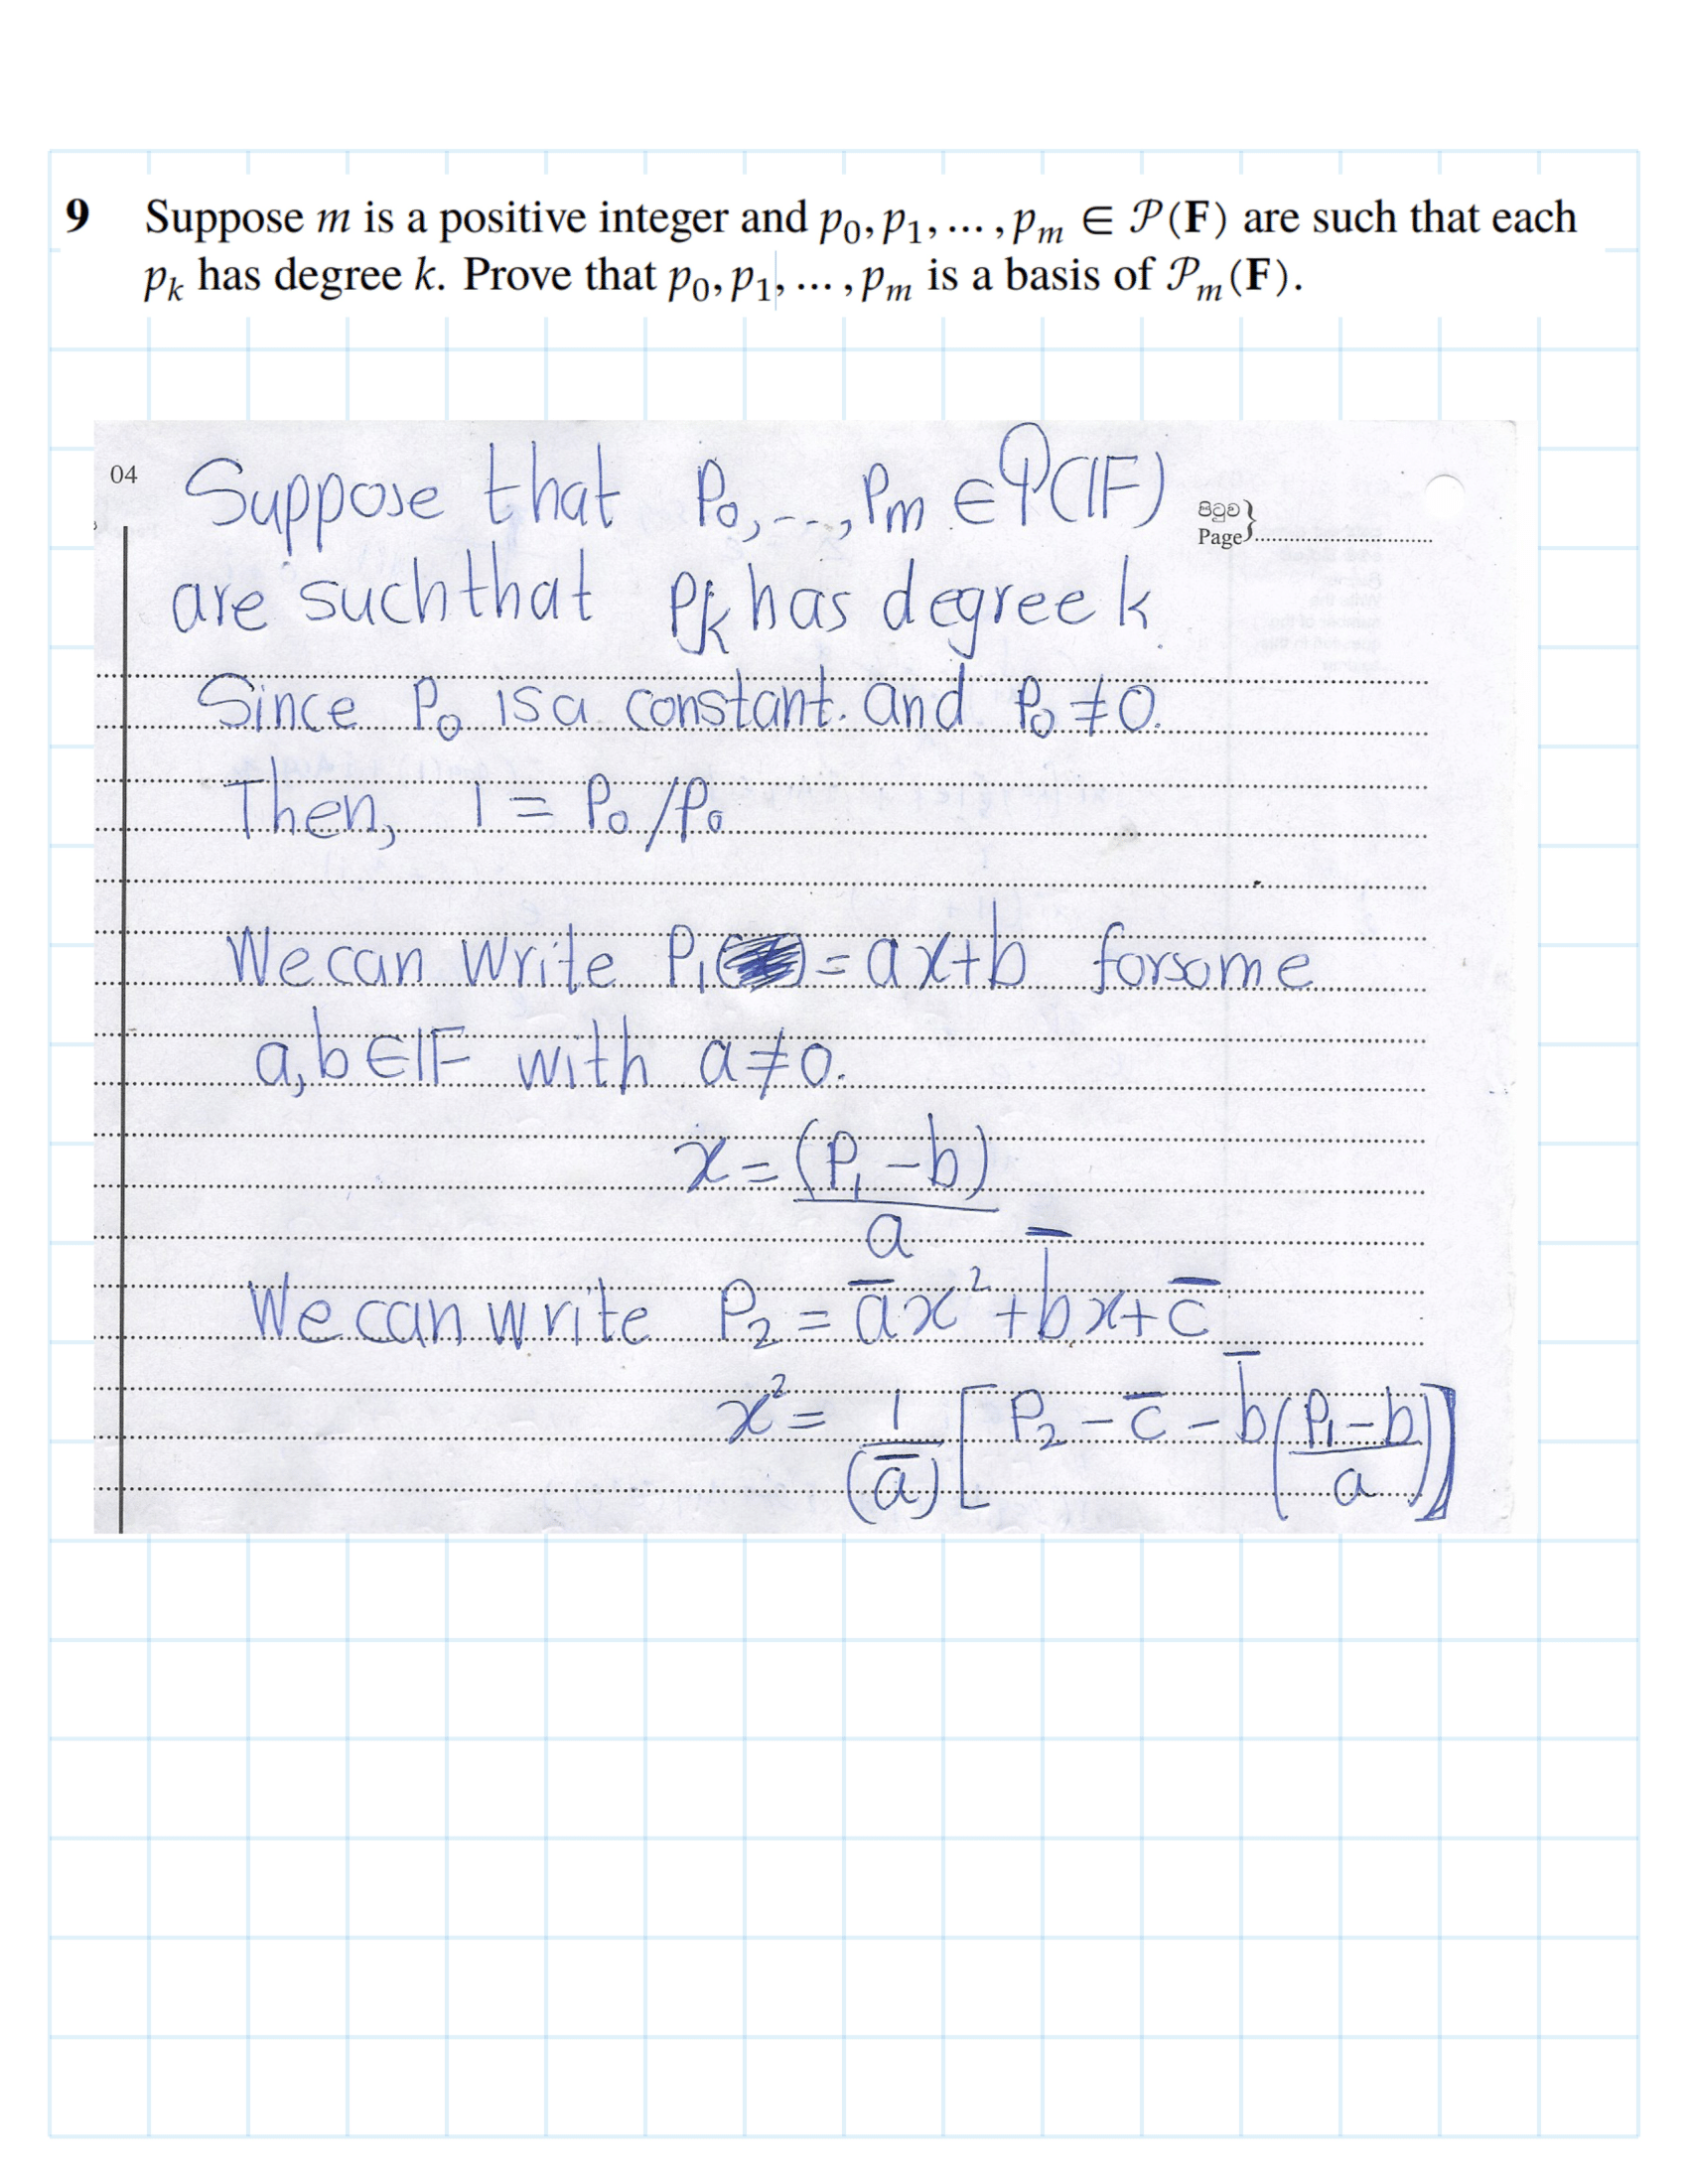 9 Suppose m is a positive integer and p₀, p₁, … , pₘ ∈ 𝒫(𝐅) are such that each
pₖ has degree k. Prove that p₀, p₁, … , pₘ is a basis of 𝒫ₘ(𝐅).
04
Suppose that P₀,---, Pₘ ∈ 𝒫(𝔽)
පිටුව
Page
are such that Pₖ has degree k
Since P₀ is a constant. and P₀ ≠ 0.
Then, 1 = P₀/P₀
We can write P₁ = ax+b for some
a,b ∈ 𝔽 with a ≠ 0.
x = (P₁ - b)/a
We can write P₂ = a̅x² + b̅x + c̅
x² = 1/(a̅) [P₂ - c̅ - b̅((P₁ - b)/a)]